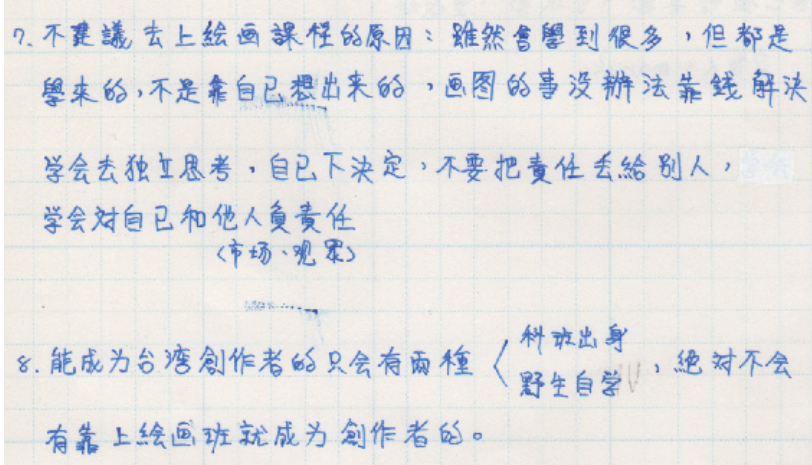 7. 不建議去上絵画課程的原因：雖然會學到很多，但都是
學來的，不是靠自己想出来的，画图的事没辦法靠錢解決
学会去独立思考，自己下決定，不要把責任丢給別人，
学会対自己和他人負責任
（市场、观眾）
8. 能成为台湾創作者的只会有兩種〈科班出身
野生自学，絶対不会
有靠上絵画班就成为創作者的。